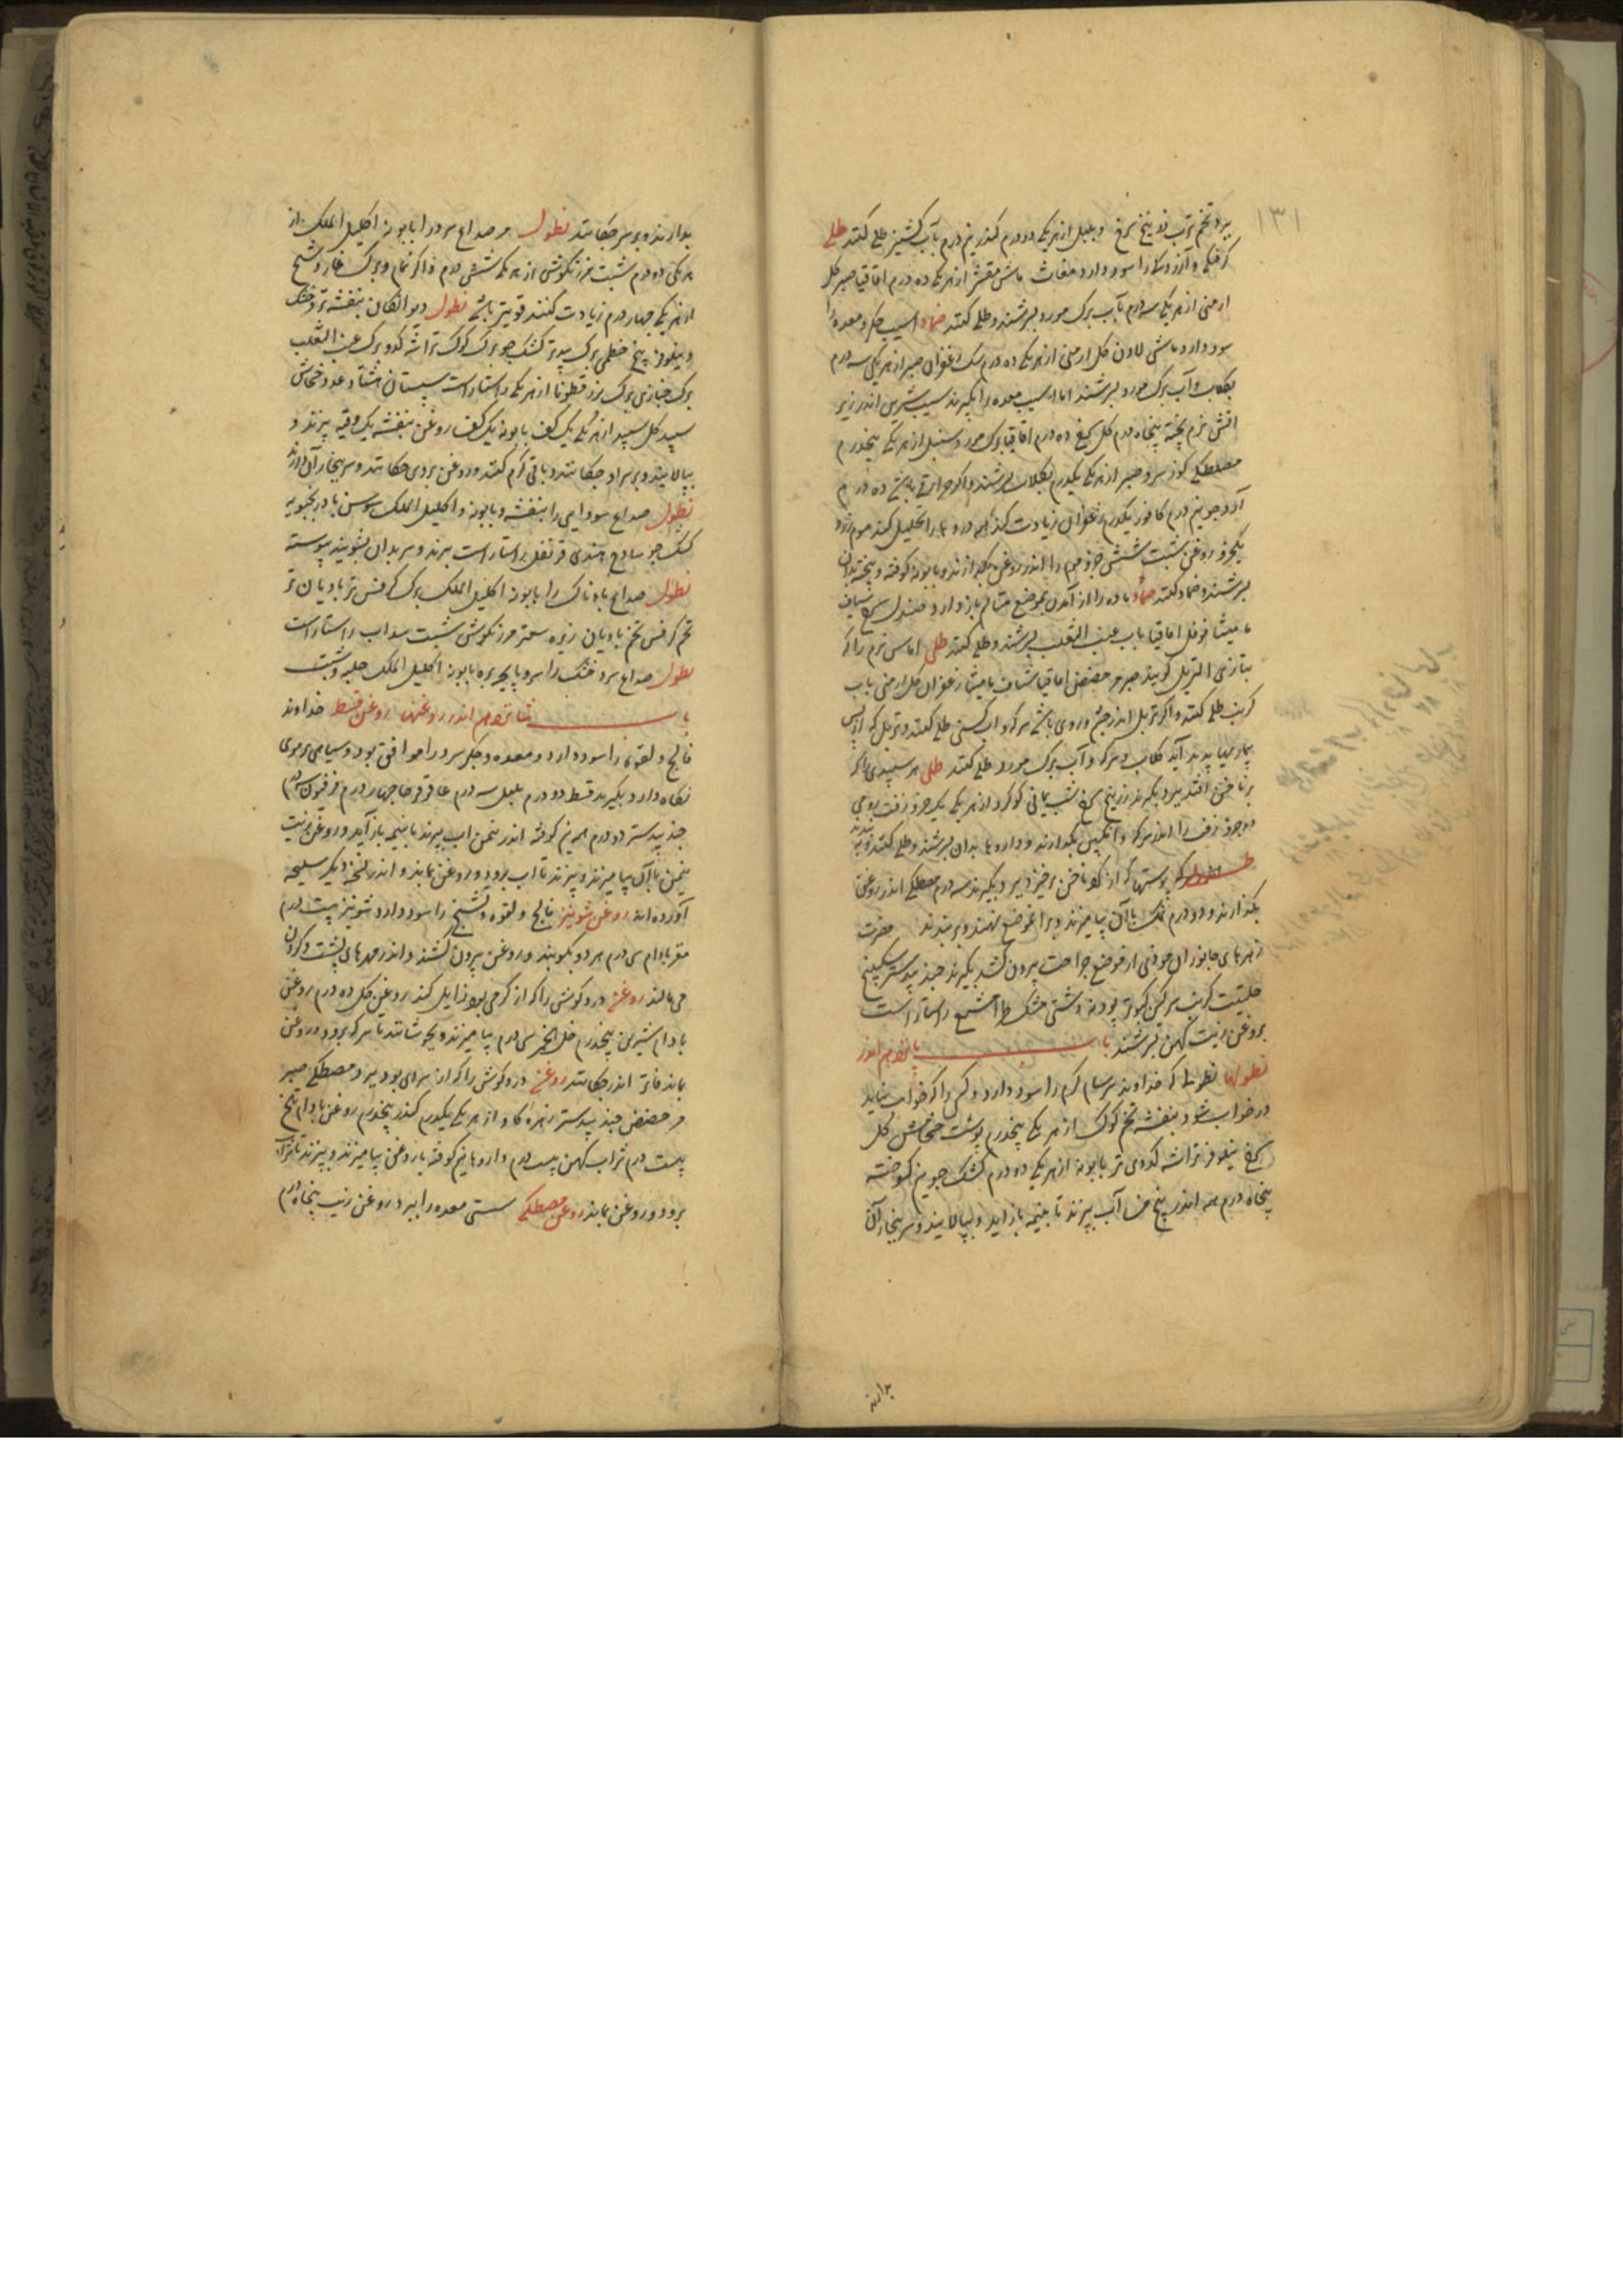 ۱۳۱
ببرد تخم ترب زرنیخ سرخ و پلپل از هر یکی دو درم کندر نیم درم بآب کشنیز طلی کنند طلی
کرفتکی و آزردکی را سود دارد مغاث ماش مقشر از هر یکی ده درم اقاقیا صبر کل
ارمنی از هر یکی سه درم بآب برک مورد بسرشند و طلی کنند ضماد اسیب جکر و معده را
سود دارد ماش لادن کل ارمنی از هر یکی ده درم سک زعفران صبر از هر یکی سه درم
بکلاب و آب برک مورد بسرشند اما اسیب معده را بکیرند سیب شیرین اندر زیر
اتش نرم پخته پنجاه درم کل سرخ ده درم اقاقیا برک مورد سنبل از هر یکی پنجدرم
مصطکی کوز سرو صبر از هر یکی یکدرم بکلاب بسرشند و اکر حرارتی باشد ده درم
آرد جو نیم درم کافور یکدرم زعفران زیادت کنند دردها را تحلیل کند موم زرد
یکجزو روغن شبت شش جزو موم را اندر روغن بکدازند و بابونه کوفته و پخته بدان
بسرشند و ضماد کنند ضماد ماده را از آمدن بموضع متالم باز دارد صندل سرخ شیاف
مامیثا فوفل اقاقیا باب عنب الثعلب بسرشند و طلی کنند طلی اماس نرم را که
بتازی التربل کویند صبر مر حضض اقاقیا شیاف مامیثا زعفران کل ارمنی باب
کرنب طلی کنند و اکر تربل اندر جشم و روی باشد سرکه و اب کسنی طلی کنند و تربل که از پس
بیماریها پدید آید کلاب و سرکه و آب برک مورد طلی کنند طلی هر سپیدی را که
بر ناخن افتد ببرد بکیرند زرنیخ سرخ شب یمانی کوکرد از هر یکی یک جزو زفت رومی
دو جزو زفت را اندر سرکه و انکبین بکدازند و داروها بدان بسرشند و طلی کنند
پوستها که از کنار ناخن برخیزد ببرد بکیرند سه درم مصطکی اندر روغن
بکدازند و دو درم نمک باآن بیامیزند و برانموضع نهند و بربندند مضرت
زهرهای جانوران موذی از موضع جراحت بیرون کشد بکیرند جند بیدستر سکبینج
حلتیت کبریت سرکین کبوتر پودنه دشتی مشک طرامشیع راستاراست
بروغن زیت کهن بسرشند باب پانزدهم اندر
نطولها نطولی که خداوند سرسام کرم را سود دارد و کسی را که خواب نیاید
در خواب شود بنفشه تخم کوک از هر یکی پنجدرم پوست خشخاش کل
سرخ نیلوفر تراشه کدوی تر بابونه از هر یکی ده درم کشک جو نیم کوفته
پنجاه درم همه اندر پنج من آب بپزند تا بنیمه باز آید و بپالایند و سر ببخار آن
بدارند
بدارند و بر سر جکانند نطول مر صداع سرد را بابونه اکلیل الملک از
هر یکی ده درم شبت مرزنکوش از هر یکی شش درم و اکر نمام و برک غار و شیح
از هر یکی چهار درم زیادت کنند قویتر باشد نطول دیوانکان بنفشه تر و خشک
و نیلوفر بیخ خطمی برک بید تر کشک جو برک کوک تراشه کدو برک عنب الثعلب
برک خبازی برک بزرقطونا از هر یکی راستاراست سپستان هشتاد عدد خشخاش
سپید کل سپید از هر یکی یک کف بابونه یک کف روغن بنفشه یک وقیه بپزند و
بپالایند و بر سر او جکانند و باقی کرم کنند و روغن بروی جکانند و سر ببخار آن دارند
نطول صداع سودایی را بنفشه و بابونه و اکلیل الملک سوسن بادرنجبویه
کشک جو ساذج هندی قرنفل راستاراست بپزند و سر بدان بشویند پیوسته
نطول صداع بادناک را بابونه اکلیل الملک برک کرفس تر بادیان تر
تخم کرفس تخم بادیان زیره سعتر مرزنکوش شبت سداب راستاراست
نطول صداع سرد خشک را سر و پاچه بره بابونه اکلیل الملک حلبه و شبت
باب شانزدهم اندر روغنها روغن قسط خداوند
فالج و لقوه را سود دارد و معده و جکر سرد را موافق بود و سیاهی موی
نکاه دارد بکیرند قسط دو درم پلپل سه درم عاقرقرحا چهار درم فرفیون سه درم
جند بیدستر دو درم همه نیم کوفته اندر نیمن اب بپزند تا بنیمه باز آید و روغن زیت
نیمن باآن بیامیزند و بپزند تا اب برود و روغن بماند و اندر نسخه دیکر سلیخه
آورده اند روغن شونیز فالج و لقوه و تشنج را سود دارد شونیز بیست درم
مغز بادام سی درم هر دو بکوبند و روغن بیرون کشند و اندر مهرهای پشت و کردن
می مالند روغن درد کوش را که از کرمی بود زایل کند روغن کل ده درم روغن
بادام شیرین پنجدرم خل الخمر سی درم بیامیزند و بجوشانند تا سرکه برود و روغن
بماند فاتر اندر جکانند روغن درد کوش را که از سردی بود ببرد مصطکی صبر
مر حضض جند بیدستر زهره کاو از هر یکی یکدرم کندر پنجدرم روغن بادام تلخ
بیست درم شراب کهن بیست درم داروها نیم کوفته با روغن بیامیزند و بپزند تا شراب
برود و روغن بماند روغن مصطکی سستی معده را ببرد روغن زیت پنجاه درم